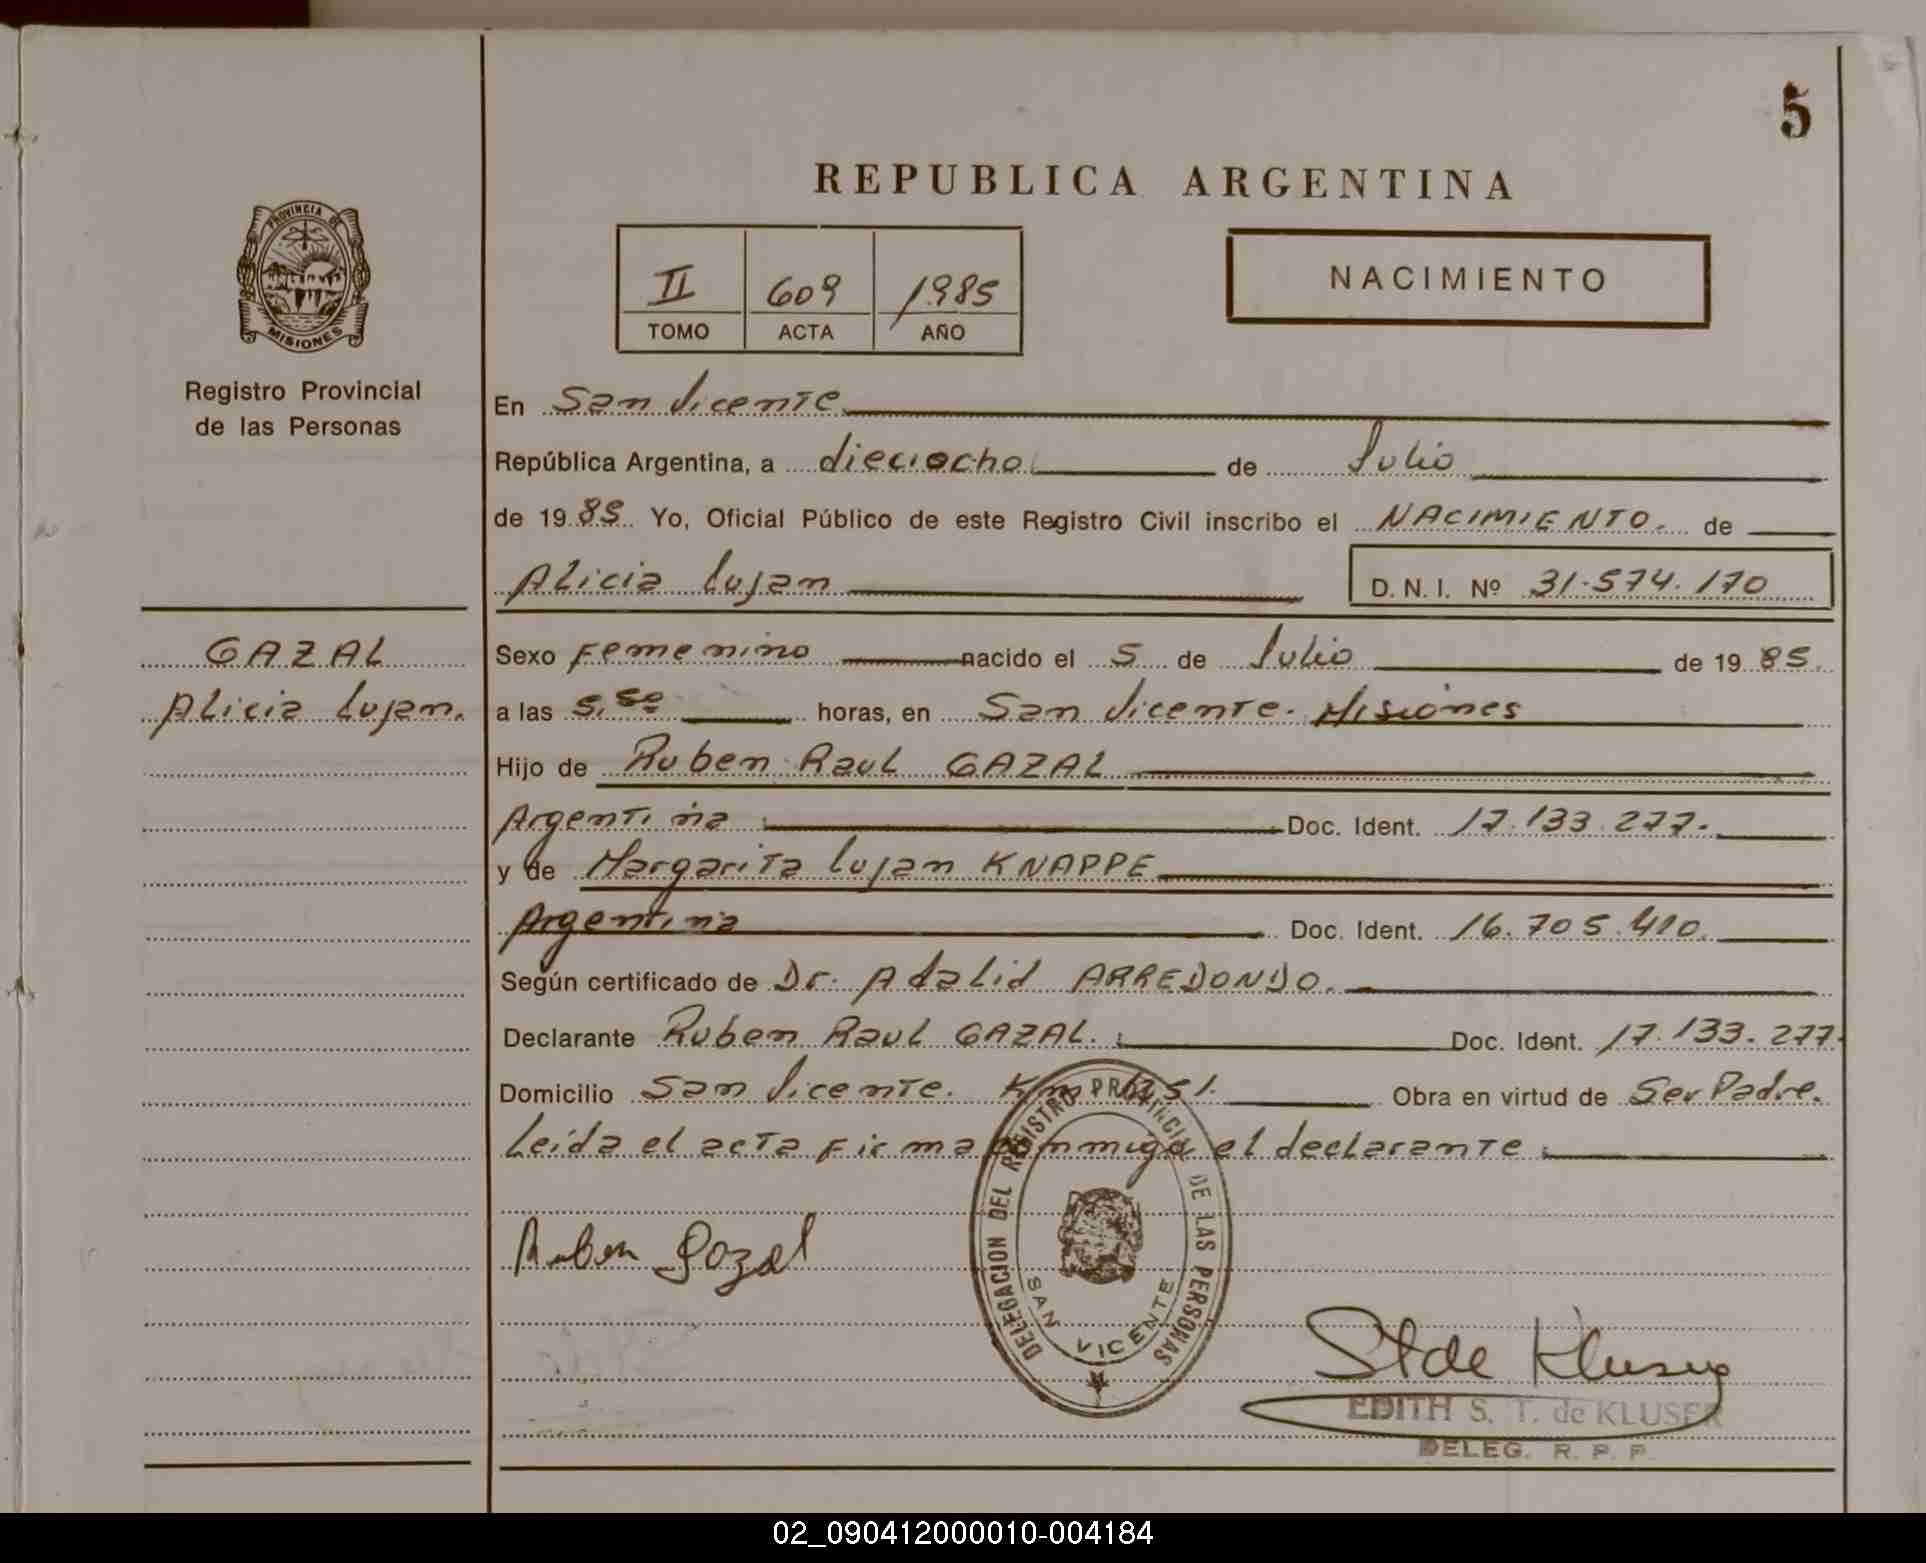 5
REPUBLICA ARGENTINA
PROVINCIA DE
MISIONES
Registro Provincial
de las Personas
II 609 1985
TOMO ACTA AÑO
NACIMIENTO
En San Vicente
República Argentina, a dieciocho de Julio
de 1985 Yo, Oficial Público de este Registro Civil inscribo el NACIMIENTO. de
Alicia Lujan D. N. I. Nº 31.574.170
GAZAL
Alicia Lujan.
Sexo Femenino nacido el 5 de Julio de 1985.
a las 5,50 horas, en San Vicente. Misiones
Hijo de Ruben Raul GAZAL
Argentina Doc. Ident. 17.133.277.
y de Margarita Lujan KNAPPE
Argentina Doc. Ident. 16.705.410.
Según certificado de Dr. Adalid ARREDONDO.
Declarante Ruben Raul GAZAL. Doc. Ident. 17.133.277.
Domicilio San Vicente. Km Obra en virtud de Ser Padre.
Leída el acta firma conmigo el declarante
Ruben Gazal
DELEGACION DEL REGISTRO PROVINCIAL DE LAS PERSONAS
SAN VICENTE
STde Kluser
EDITH S. T. de KLUSER
DELEG. R. P. P.
02_090412000010-004184